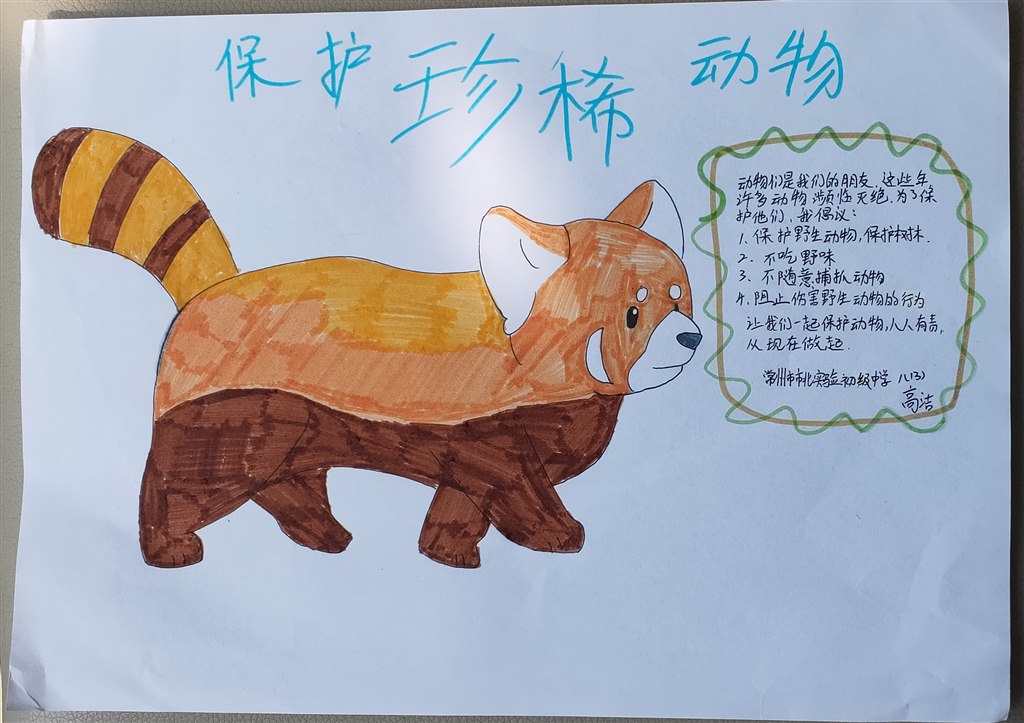 保护珍稀动物
动物们是我们的朋友,这些年
许多动物濒临灭绝.为了保
护他们,我倡议:
1、保护野生动物,保护树林.
2、不吃野味
3、不随意捕抓动物
4、阻止伤害野生动物的行为
让我们一起保护动物,人人有责,
从现在做起.
常州市市北实验初级中学 八(3)
高洁